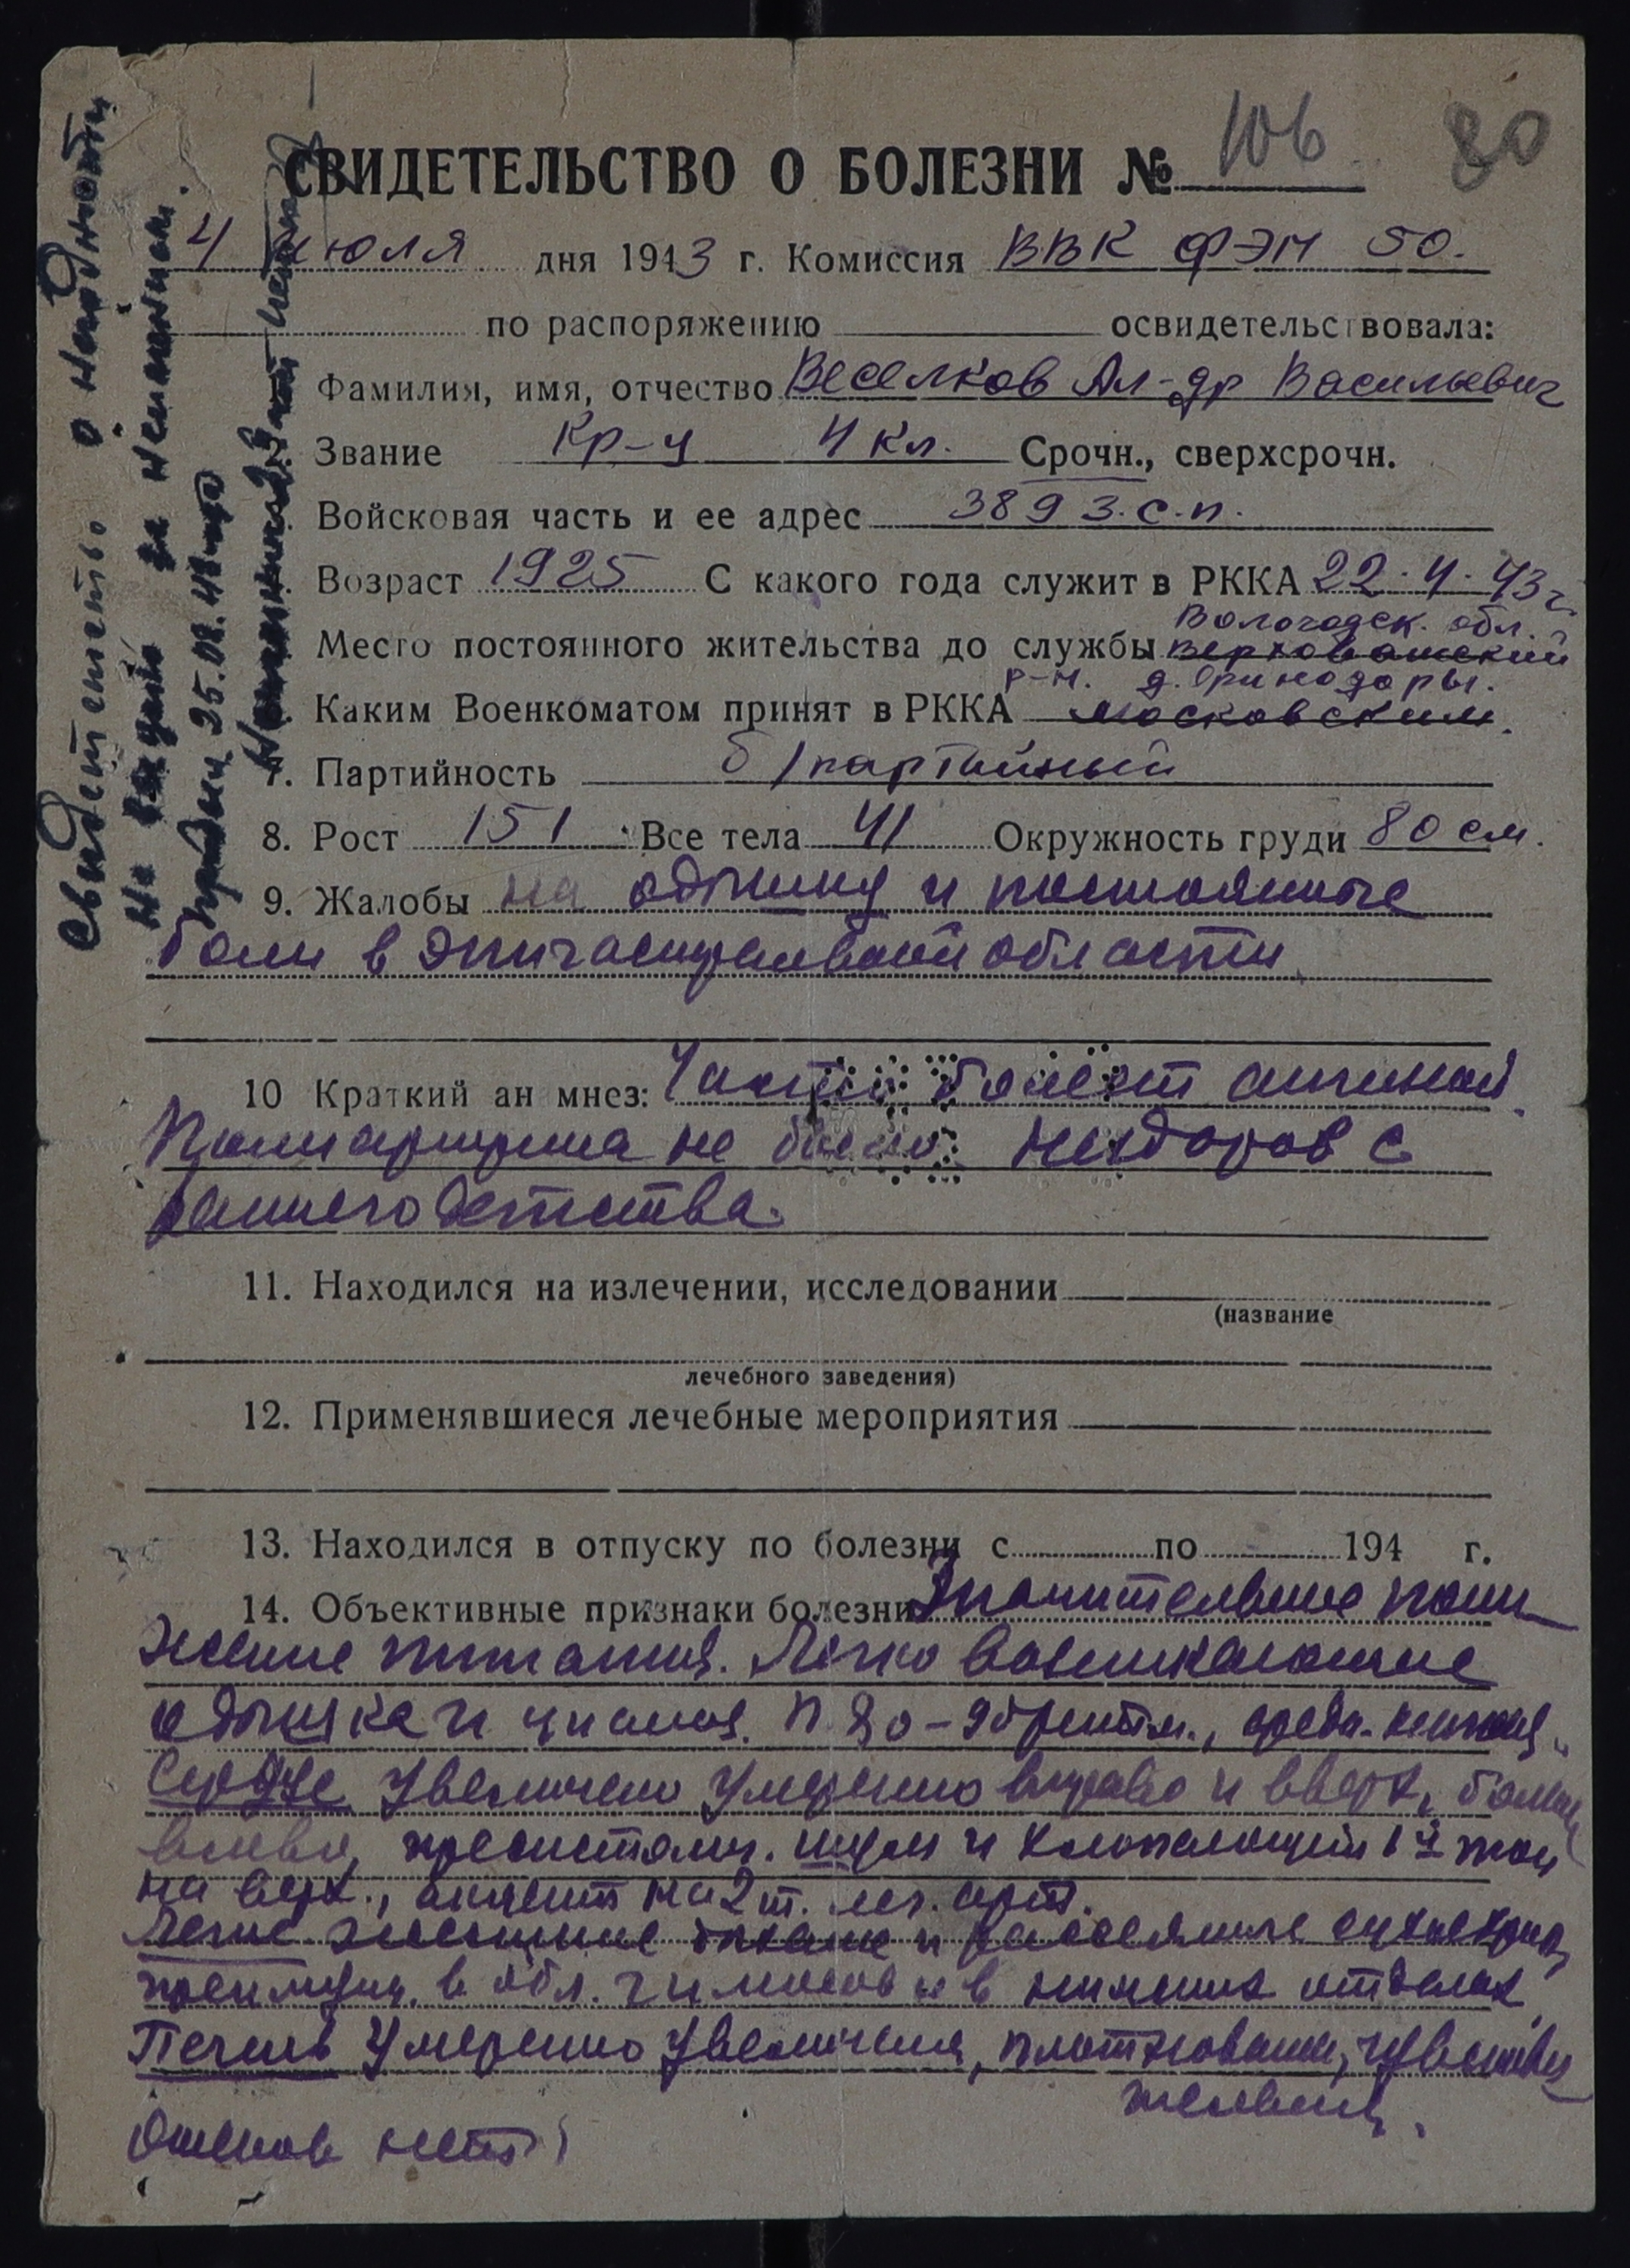 106 80
СВИДЕТЕЛЬСТВО О БОЛЕЗНИ №
4 июля дня 1943 г. Комиссия ВВК ФЭП 50.
по распоряжению освидетельствовала:
Фамилия, имя, отчество Веселков Ал-др Васильевич
2. Звание Кр-ц 4 кл. Срочн., сверхсрочн.
Войсковая часть и ее адрес 389 з.с.п.
Возраст 1925 С какого года служит в РККА 22.4.43 г.
Вологодск. обл.
Место постоянного жительства до службы Верховажский
р-н. д.
Каким Военкоматом принят в РККА Московским.
7. Партийность б/партийный
8. Рост 151 Все тела 41 Окружность груди 80 см.
9. Жалобы на одышку и постоянные
боли в эпигастральной области
10 Краткий ан мнез: Часто болеет ангиной.
Полиартрита не было. Нездоров с
раннего детства.
11. Находился на излечении, исследовании
(название
лечебного заведения)
12. Применявшиеся лечебные мероприятия
13. Находился в отпуску по болезни с по 194 г.
14. Объективные признаки болезни Значительное пони
жение питания. Легко возникающие
одышка и цианоз. П 80 - ритм.,
Сердце увеличено умеренно вправо и вверх, более
влево, пресистолич. шум и хлопающий 1й тон
на верх., акцент на 2 т. лег. арт.
Легкие жесткое дыхание и рассеянные сухие хрипы,
преимущ. в обл. и в нижних отделах.
Печень умеренно увеличена, плотновата, чувстви
тельна.
Отеков нет
Свидетельство о
Не за
25.08.43